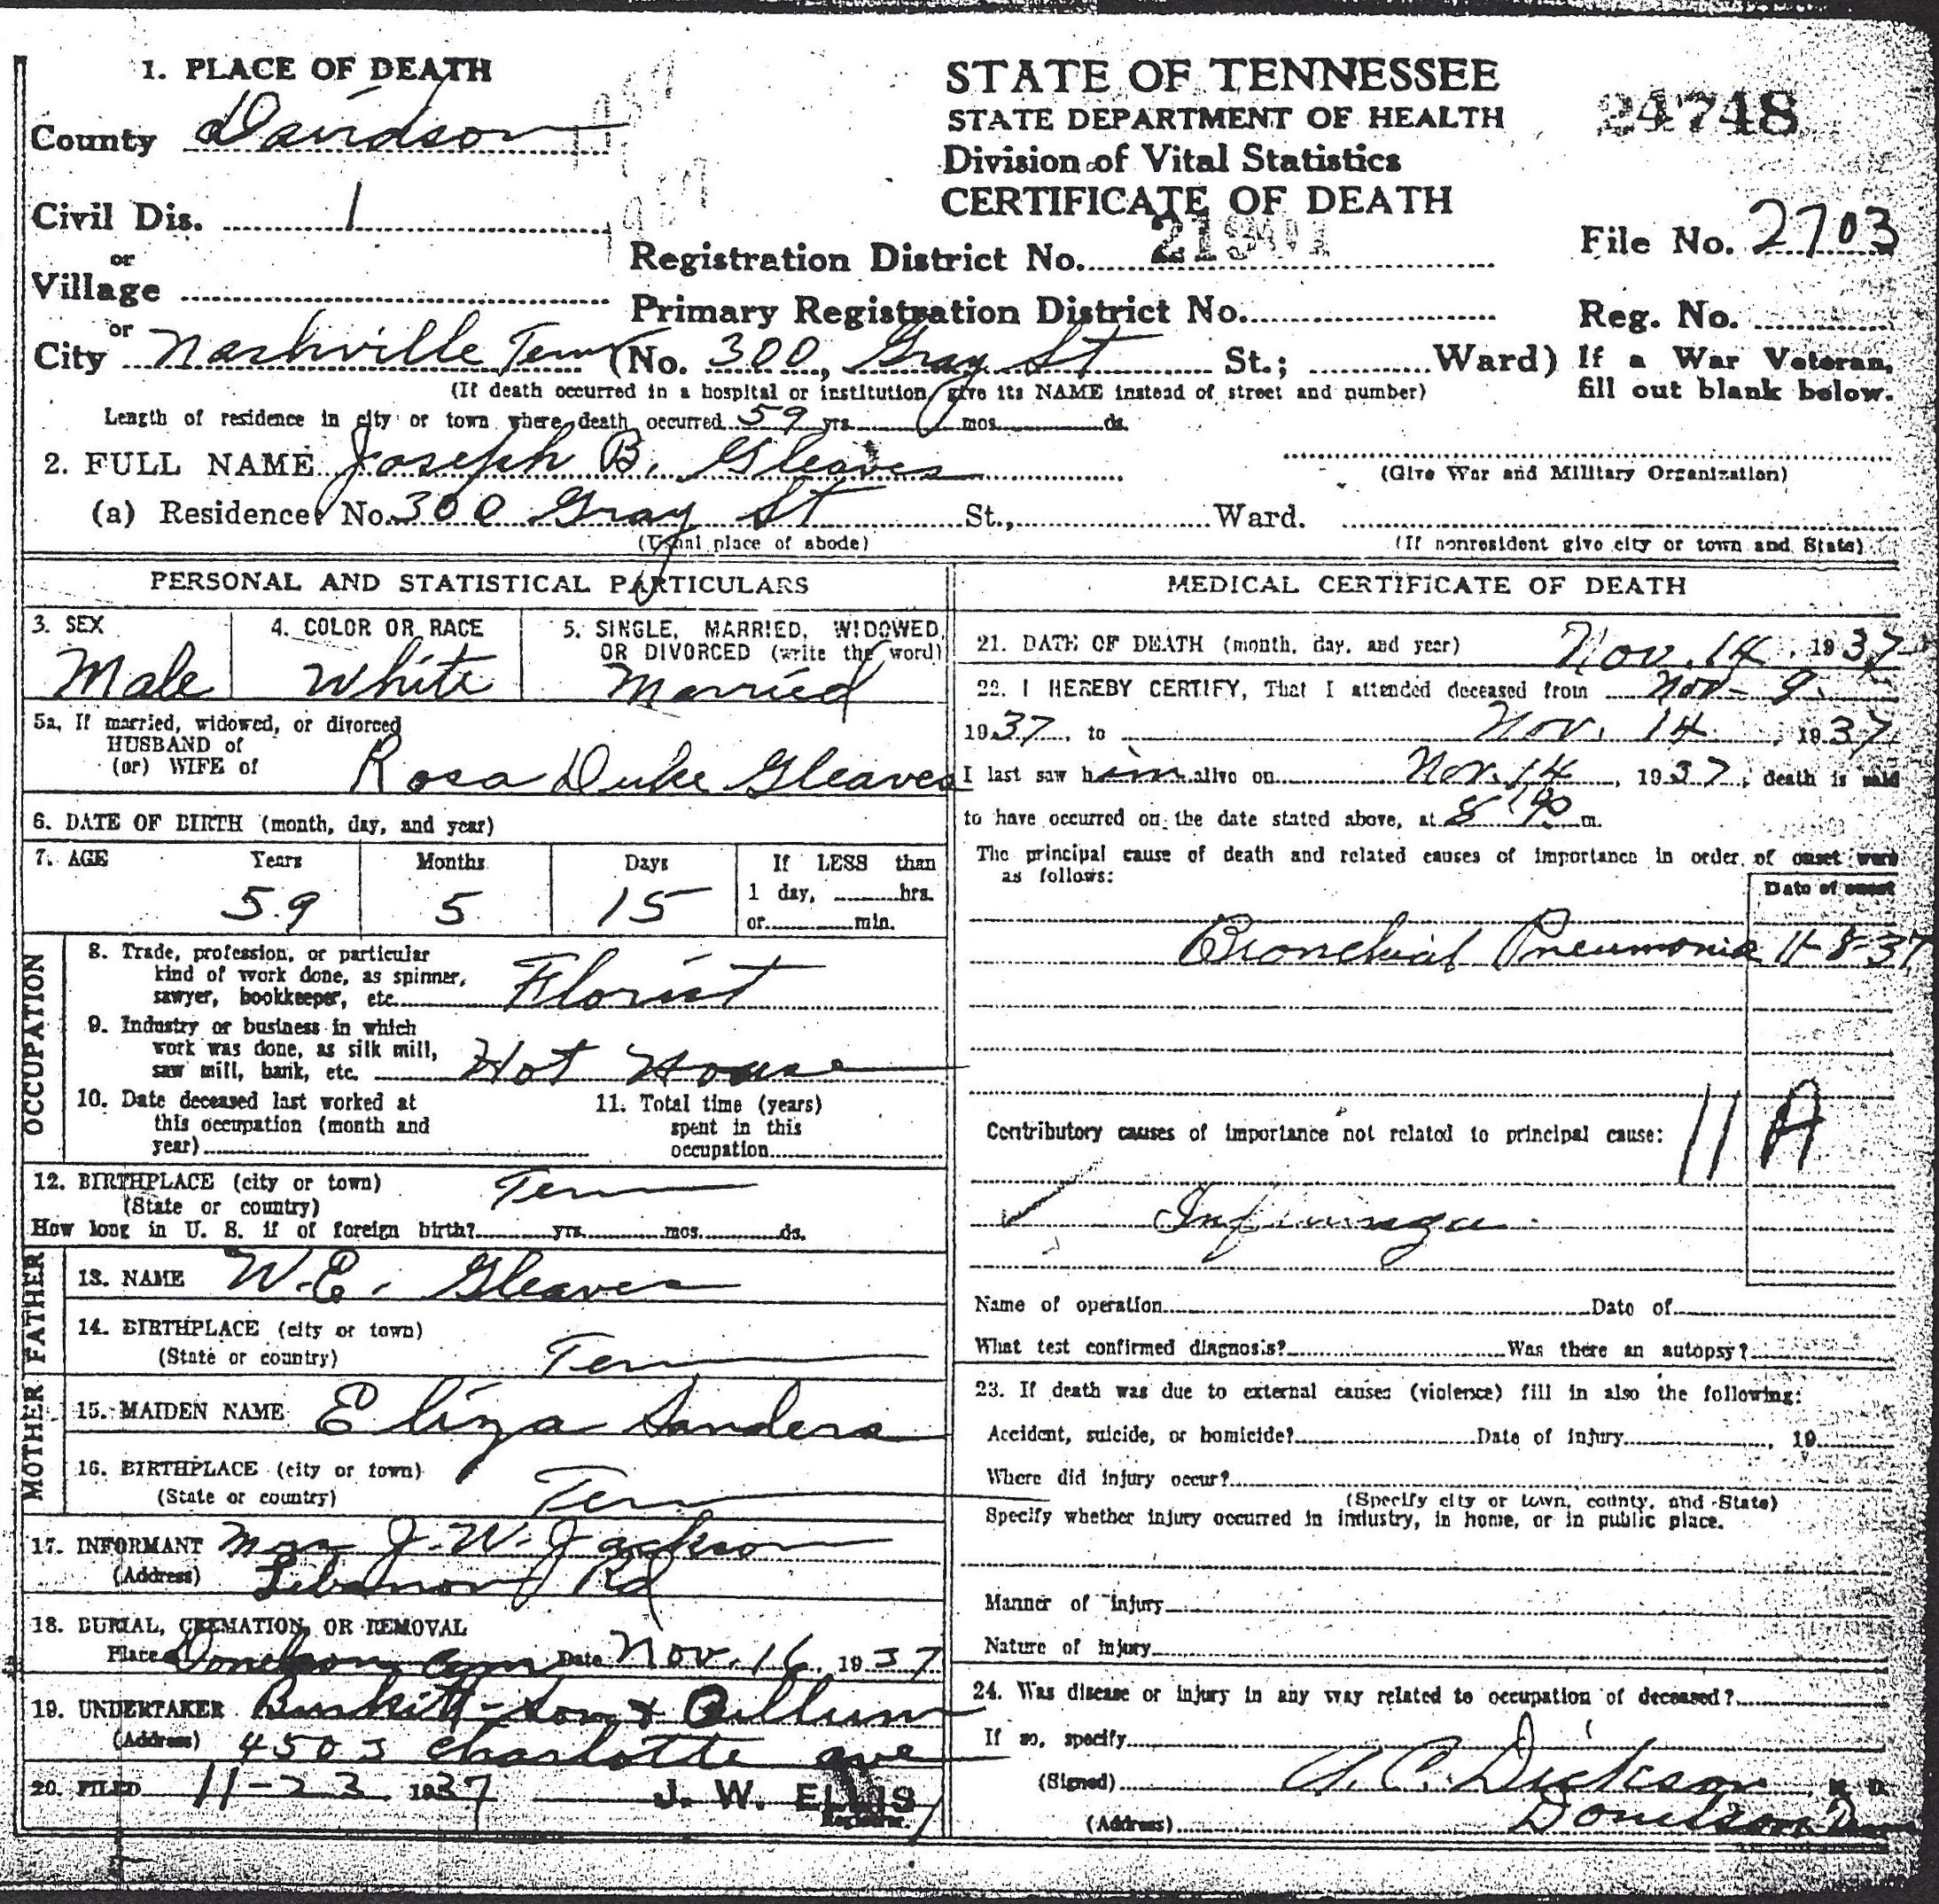 1. PLACE OF DEATH
County Davidson
Civil Dis. 1
or
Village
or
City Nashville Tenn (No. 300, Gray St St.; Ward)
(If death occurred in a hospital or institution, give its NAME instead of street and number)
Length of residence in city or town where death occurred 59 yrs. mos. ds.
STATE OF TENNESSEE
STATE DEPARTMENT OF HEALTH
Division of Vital Statistics
CERTIFICATE OF DEATH
Registration District No.
Primary Registration District No.
24748
File No. 2703
Reg. No.
If a War Veteran, fill out blank below.
2. FULL NAME Joseph B. Gleaves
(Give War and Military Organization)
(a) Residence: No. 300 Gray St St., Ward.
(Usual place of abode)
(If nonresident give city or town and State)
PERSONAL AND STATISTICAL PARTICULARS
3. SEX
Male
4. COLOR OR RACE
White
5. SINGLE, MARRIED, WIDOWED, OR DIVORCED (write the word)
Married
5a. If married, widowed, or divorced
HUSBAND of
(or) WIFE of Rosa Duke Gleaves
6. DATE OF BIRTH (month, day, and year)
7. AGE Years Months Days If LESS than
59 5 15 1 day, hrs.
or min.
OCCUPATION
8. Trade, profession, or particular
kind of work done, as spinner,
sawyer, bookkeeper, etc. Florist
9. Industry or business in which
work was done, as silk mill,
saw mill, bank, etc. Hot House
10. Date deceased last worked at
this occupation (month and
year)
11. Total time (years)
spent in this
occupation
12. BIRTHPLACE (city or town) Tenn
(State or country)
How long in U. S. if of foreign birth? yrs. mos. ds.
FATHER
13. NAME W.E. Gleaves
14. BIRTHPLACE (city or town)
(State or country) Tenn
MOTHER
15. MAIDEN NAME Eliza Sanders
16. BIRTHPLACE (city or town)
(State or country) Tenn
17. INFORMANT Mrs J.W. Jackson
(Address) Lebanon Rd
18. BURIAL, CREMATION, OR REMOVAL
Place Donelson Date Nov. 16 1937
19. UNDERTAKER
(Address) 4503 Charlotte ave
20. FILED 11-23 1937 J. W. ELLIS
Registrar.
MEDICAL CERTIFICATE OF DEATH
21. DATE OF DEATH (month, day, and year) Nov. 14, 1937
22. I HEREBY CERTIFY, That I attended deceased from Nov- 9.
1937, to Nov. 14, 1937
I last saw him alive on Nov. 14, 1937; death is said
to have occurred on the date stated above, at m.
The principal cause of death and related causes of importance in order of onset were
as follows:
Date of onset
Bronchial Pneumonia 11-8-37
Contributory causes of importance not related to principal cause:
11 A
Influenza
Name of operation Date of
What test confirmed diagnosis? Was there an autopsy?
23. If death was due to external causes (violence) fill in also the following:
Accident, suicide, or homicide? Date of injury , 19
Where did injury occur?
(Specify city or town, county, and State)
Specify whether injury occurred in industry, in home, or in public place.
Manner of injury
Nature of injury
24. Was disease or injury in any way related to occupation of deceased?
If so, specify
(Signed) Dickson M. D.
(Address) Donelson